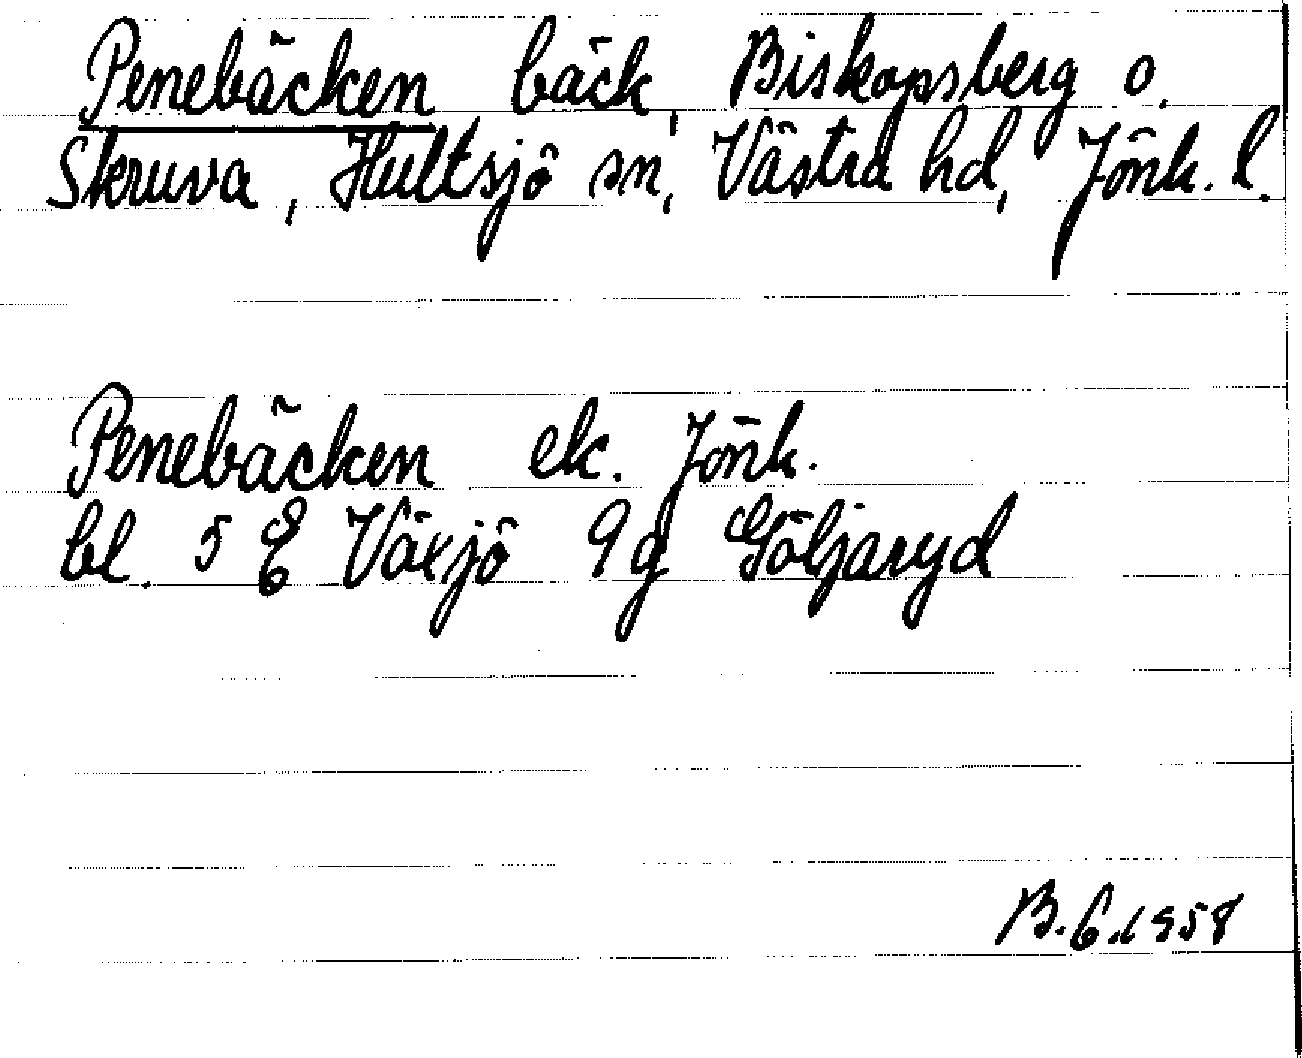 Penebäcken bäck, Biskopsberg o.
Skruva, Hultsjö sn, Västra hd, Jönk. l.
Penebäcken ek. Jönk.
bl. 5 E Växjö 9g Göljaryd
B. G. 1958